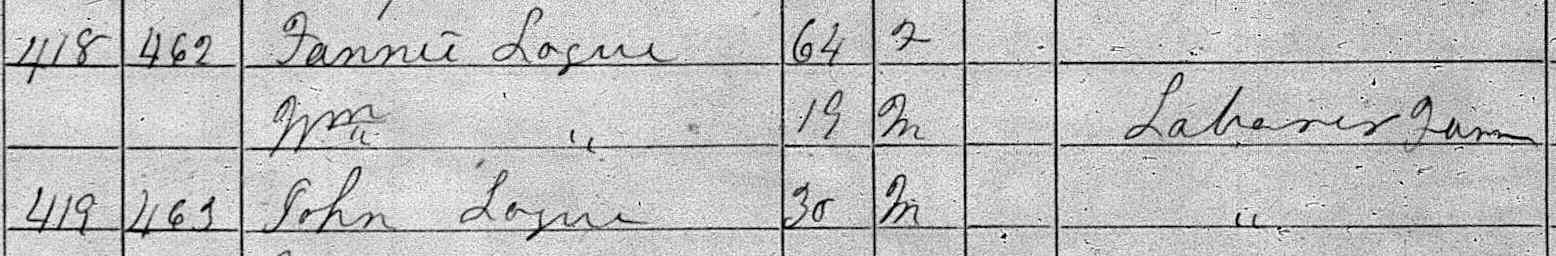 418 462 Fannie Logue 64 F
Wm " 19 M Laborer Farm
419 463 John Logue 30 M "